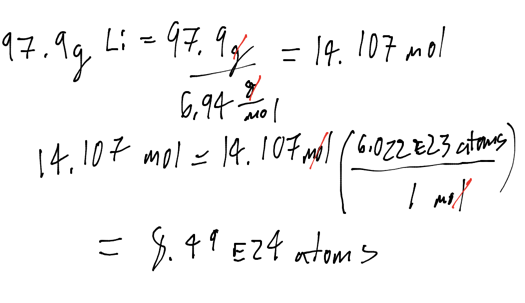 97.9g Li = 97.9g / 6.94 g/mol = 14.107 mol
14.107 mol = 14.107 mol (6.022E23 atoms / 1 mol)
= 8.49 E24 atoms